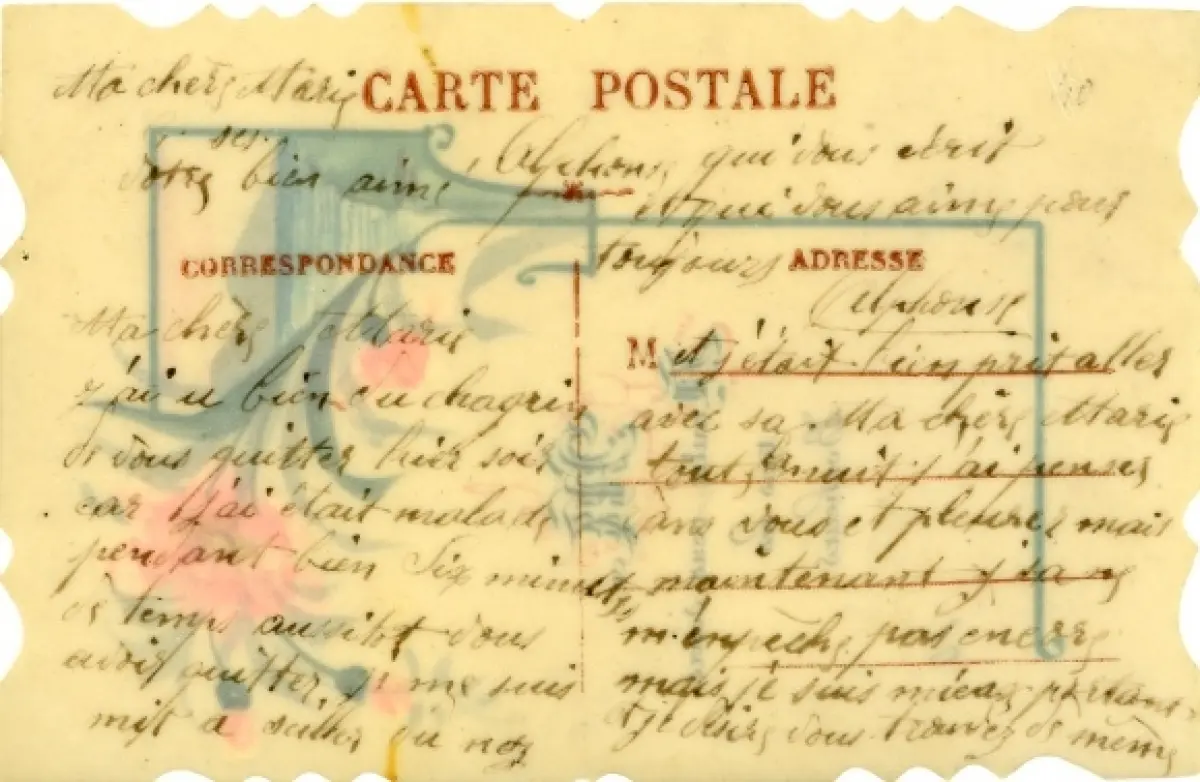 Ma chère Marie
CARTE POSTALE
ses
votre bien aimé Alphonse qui vous écrit
et qui vous aime pour
toujours
Alphonse
CORRESPONDANCE
ADRESSE
Ma chère Marie
j'ai u bien du chagrin
de vous quitter hier soir
car j'ai était malade
pendant bien Six minutes
de temps aussitot vous
avoir quitter, je me suis
mit a du nez
M et j'était bien prit aller
avec sa Ma chère Marie
tout la nuit j'ai penser
dans vous et pleurer mais
maintenant
m'enpèche pas encore
mais je suis mieux portant
et je désire vous trouvez de même